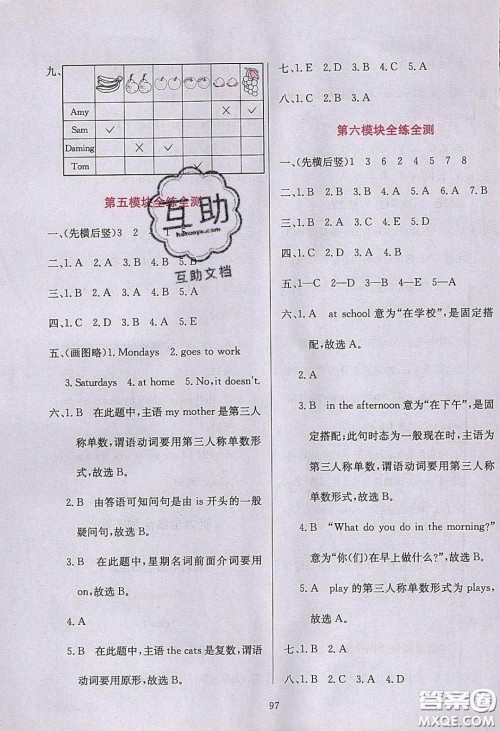 九、
Amy × ✓
Sam ✓
Daming × ✓
Tom ×
第五模块全练全测
一、(先横后竖)3 2
二、1.A 2.A 3.B 4.A 5.A
三、1.B 2.A 3.B
四、1.C 2.D 3.B 4.A 5.E
五、(画图略)1.Mondays 2.goes to work
3.Saturdays 4.at home 5.No,it doesn't.
六、1.B 在此题中,主语 my mother 是第三人
称单数,谓语动词要用第三人称单数形
式,故选 B。
2.B 由答语可知问句是由 is 开头的一般
疑问句,故选 B。
3.B 在此题中,星期名词前面介词要用
on,故选 B。
4.A
5.B 在此题中,主语 the cats 是复数,谓语
动词要用原形,故选 B。
七、1.E 2.D 3.B 4.C 5.A
八、1.C 2.A 3.B 4.A
第六模块全练全测
一、(先横后竖)1 3 6 2 4 5 7 8
二、1.A 2.D 3.B 4.C 5.A
三、1.A 2.C 3.B 4.E 5.D
四、1.B 2.B 3.A 4.B
五、1—C 2—D 3—E 4—B 5—A
六、1.A at school 意为“在学校”,是固定搭
配,故选 A。
2.A
3.B in the afternoon 意为“在下午”,是固
定搭配;此句时态为一般现在时,主语为
第三人称单数,谓语动词要用第三人称
单数形式,故选 B。
4.B “What do you do in the morning?”
意为“你(们)在早上做什么?”,故选 B。
5.A play 的第三人称单数形式为 plays,
故选 A。
七、1.B 2.A
八、1.B 2.C 3.A 4.D
97
互助
hardoye.com
互助文档
答案圈
MXQE.COM